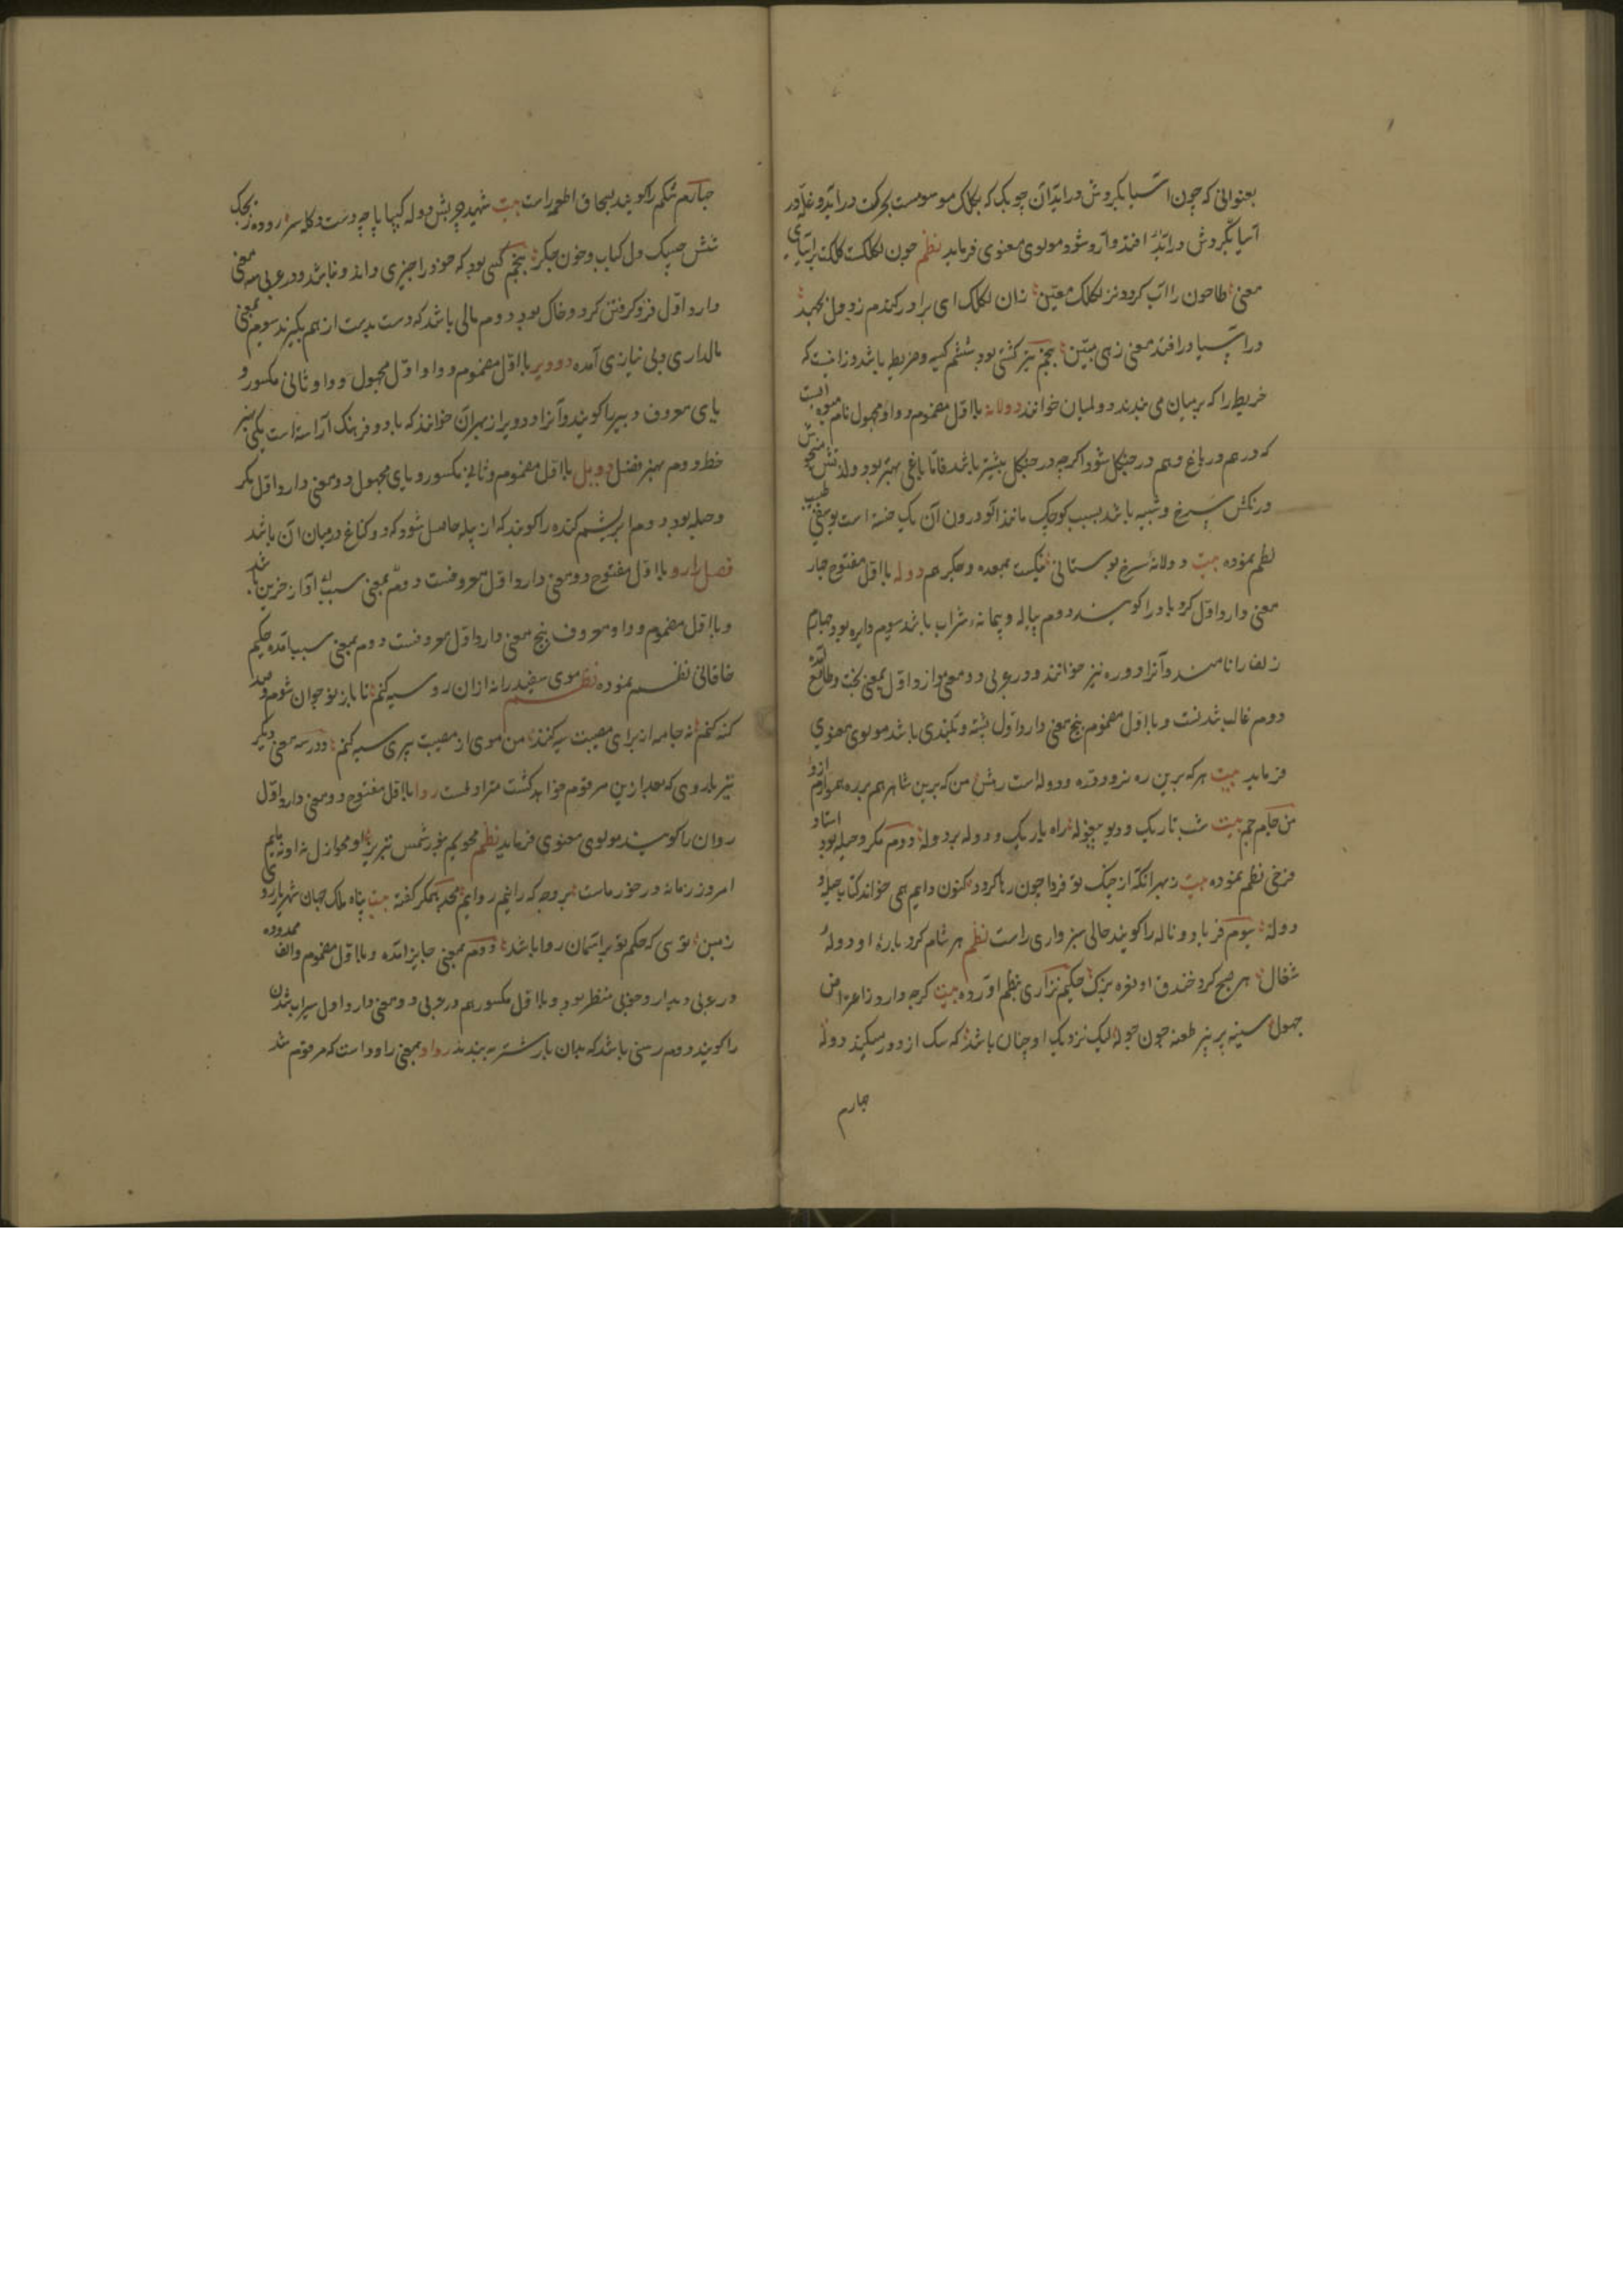 بعنوانی که چون آسیا بگردش درآید آن چوبک که بلکلک موسومست بحرکت درآید و غله در
آسیا بگردش درآید افتد و آرد شود مولوی معنوی فرماید نظم چون لکلکست کلکت بر آسیای
معنی طاحون را آب گردون لکلک معین زان لکلک ای برادر گندم ز دول بجهد
در آسیا درافتد معنی زهی مبین پنجم تیر کشتی بود ششم کیسه و خریطه باشد و زاینست که
خریطه را که بر میان می بندند دولمیان خوانند دولانه با اول مضموم و واو مجهول نام میوه ایست
که در هم در باغ و هم در جنگل شود اگرچه در جنگل بیشتر باشد فاما باغی بهتر بود
و رنکش سرخ و شبیه باشد بسیب کوچک مانند آلو درون آن یک خسته است
نظم نموده بیت دولانه سرخ بوستانی نیکست بمعده و جکر هم دوله با اول مفتوح چهار
معنی دارد اول کرد باد را کویند دوم پیاله و پیمانه شراب باشد سیوم دایره بود چهارم
زلف را نامند و آنرا دوره نیز خوانند و در عربی دو معنی دارد اول بمعنی بخت و طالع آمده
دوم غالب شدنست و با اول مضموم پنج معنی دارد اول پشته و بلندی باشد مولوی معنوی
فرماید بیت هر که برین ره نرود دره و دوله است رهش من که برین شاهرهم بر ره هموارم ازو
من حکم جم بیت شب تاریک و دیو بیغوله راه باریک و دوله بر دوله دوم مکر و حیله بود استاد
فرخی نظم نموده بیت ز بهر آنکه از چنک تو فردا چون رها کردد کنون دایم همی خواند کتاب حیله و
دوله سیوم فریاد و ناله را کویند حالی سبزواری راست نظم هر شام کرد باره او دوله
شغال هر صبح کرد خندق او نوه بزک حکیم نزاری بنظم آورده بیت کرچه دارد ز اعتراض
جهول سینه پر تیر طعنه چون جوله لیک نزدیک او چنان باشد که سک از دور میکند دوله
چهارم
چهارم شکم را کویند بسحاق اطعمه راست بیت شهید چربش دوله کیپا پاچه و دست و کله سر روده زنجک
شش حسیبک دل کباب و خون جکر پنجم کسی بود که خود را چیزی داند و نباشد و در عربی سه معنی
دارد اول فرو کرفتن کرد و خاک بود دوم مالی باشد که دست بدست از هم بکیرند سیوم بمعنی
مالداری و بی نیازی آمده دوویر با اول مضموم و واو اول مجهول و واو ثانی مکسور و
یای معروف دبیر را کویند و آنرا دوویر از بهر آن خوانند که با دو فرهنک آراسته است یکی هنر
خط دوم هنر فضل دویل با اول مضموم و ثانی مکسور و یای مجهول دو معنی دارد اول مکر
و حیله بود دوم ابریشم کنده را کویند که از پیله حاصل شود که دو کناغ در میان آن باشد
فصل را رو با اول مفتوح دو معنی دارد اول معروفست دوم بمعنی سبب آواز حزین باشد
و با اول مضموم و واو معروف پنج معنی دارد اول معروفست دوم بمعنی سبب آمده حکیم
خاقانی نظم نموده نظم موی سفید را نه از آن رو سیه کنم تا باز نوجوان شوم و صد
کنه کنم نه جامه از برای مصیبت سیه کنند من موی از مصیبت پیری سیه کنم و در سه معنی دیکر
نیز با روی که بعد ازین مرقوم خواهد کشت مترادفست روا با اول مفتوح دو معنی دارد اول
روان را کویند مولوی معنوی فرماید نظم محویم بخور شمس تبریز او محو ازل نه او نه ماییم
امروز زمانه در خور ماست بر وجه که رانیم روایم مجد همکر کفته بیت پناه ملک جهان شهریار روی
زمین توسی که حکم تو بر آسمان روا باشد دوم بمعنی جایز آمده و با اول مضموم و الف ممدوده
در عربی دیدار و خوبی منظر بود و با اول مکسور هم در عربی دو معنی دارد اول سیراب شدن
را کویند دوم رسنی باشد که بدان بار شتر به بندند رواد بمعنی راود است که مرقوم شد